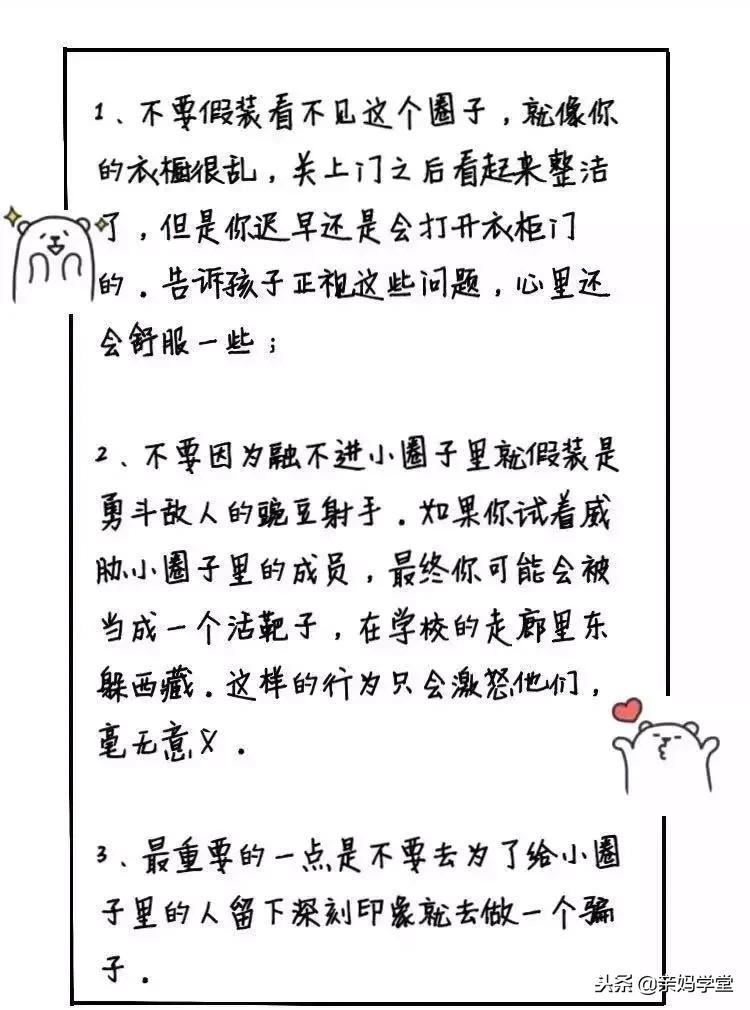 1、不要假装看不见这个圈子，就像你
的衣橱很乱，关上门之后看起来整洁
了，但是你迟早还是会打开衣柜门
的．告诉孩子正视这些问题，心里还
会舒服一些；
2、不要因为融不进小圈子里就假装是
勇斗敌人的豌豆射手．如果你试着威
胁小圈子里的成员，最终你可能会被
当成一个活靶子，在学校的走廊里东
躲西藏．这样的行为只会激怒他们，
毫无意义．
3、最重要的一点是不要去为了给小圈
子里的人留下深刻印象就去做一个骗
子．
头条@亲妈学堂